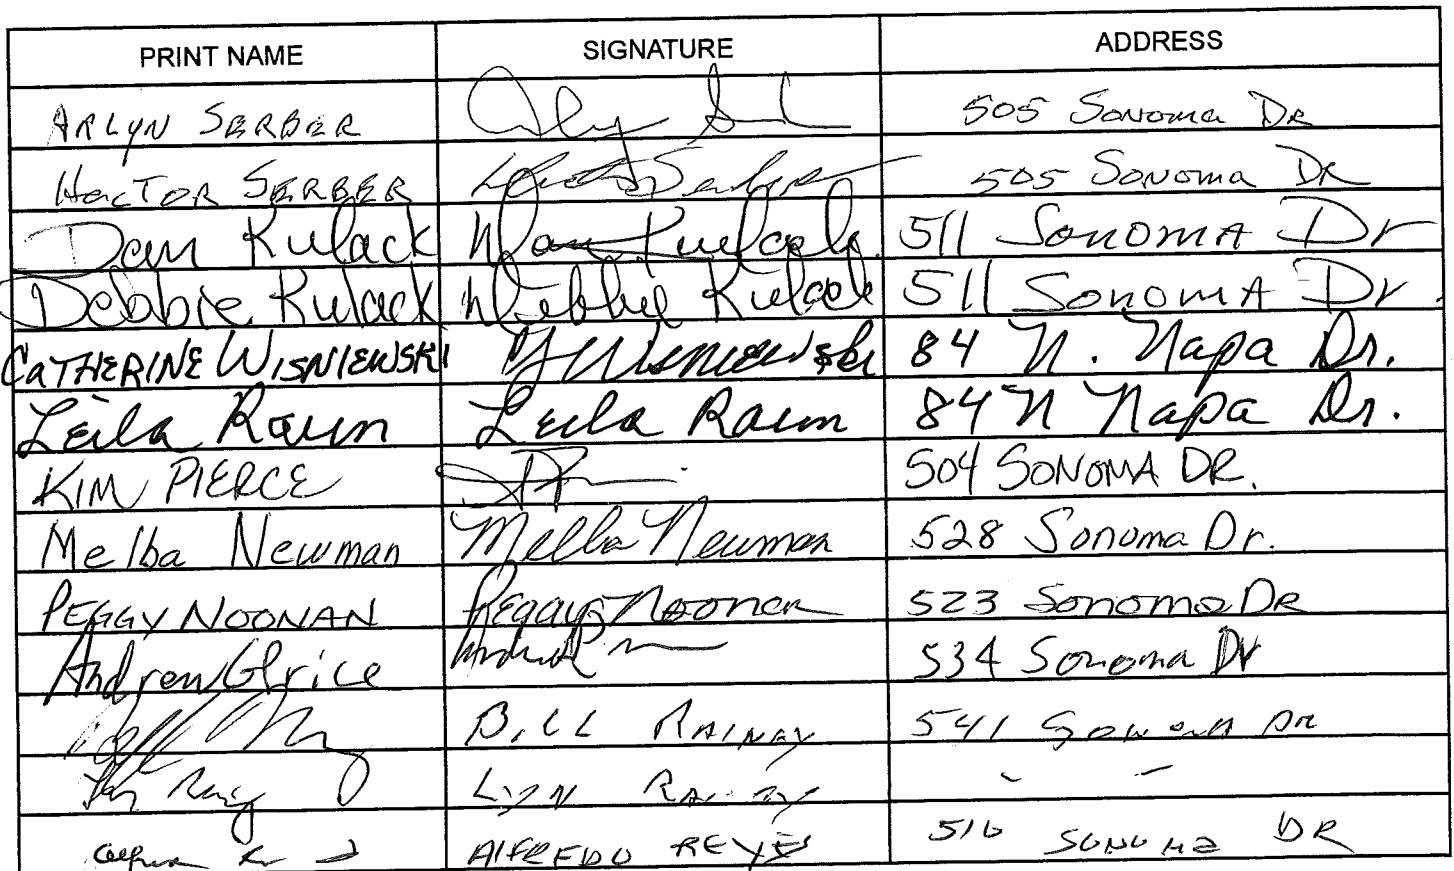 PRINT NAME SIGNATURE ADDRESS
ARLYN SERBER 505 Sonoma DR
HECTOR SERBER 505 Sonoma DR
Dan Kulack Dan Kulack 511 Sonoma Dr
Debbie Kulack Debbie Kulack 511 Sonoma Dr
CATHERINE WISNIEWSKI Wisniewski 84 N. Napa Dr.
Leila Raun Leila Raun 84 N Napa Dr.
KIM PIERCE 504 SONOMA DR.
Melba Newman Melba Newman 528 Sonoma Dr.
PEGGY NOONAN Peggy Noonan 523 Sonoma DR
Andrew Grice 534 Sonoma Dr
BILL RAINEY 541 SONOMA DR
LYN RAINEY
ALFREDO REYES 510 SONOMA DR